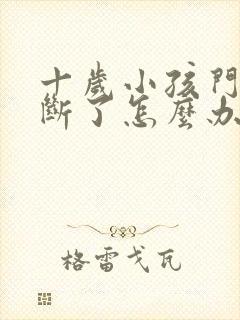 十歲小孩門
斷了怎麼办
格雷戈瓦